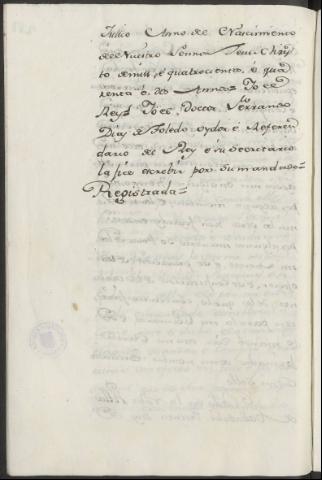 Julio Anno del Nascimiento
de Nuestro Sennor Jesu Chris
to de mill, é quatrocientos, é qua
renta é dos Annos. Yo el
Rey. Yo el Doctor Ferrando
Diaz de Toledo Oydor é Referen
dario del Rey é su Secretario
la fice escrebir por su mandado =
Registrada =